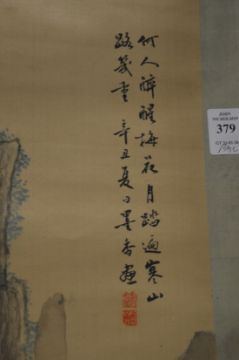 何人醉醒梅花月踏遍寒山
路幾重 辛丑夏日墨香畫
JOHN
NICHOLSON
379